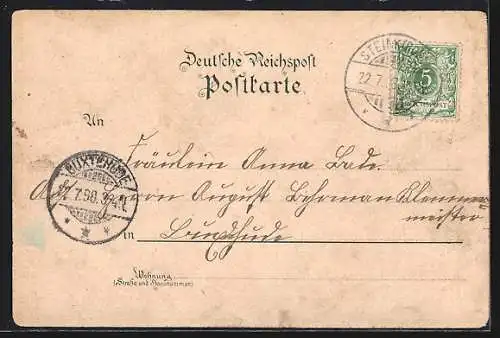 Deutsche Reichspost
Postkarte
STEINKI
22.7.
5
An
Fräulein Anna Bade.
Herrn August Behrman Klemmer
meister
BUXTEHUDE
7.98.
in Buxtehude
Wohnung
(Straße und Hausnummer)